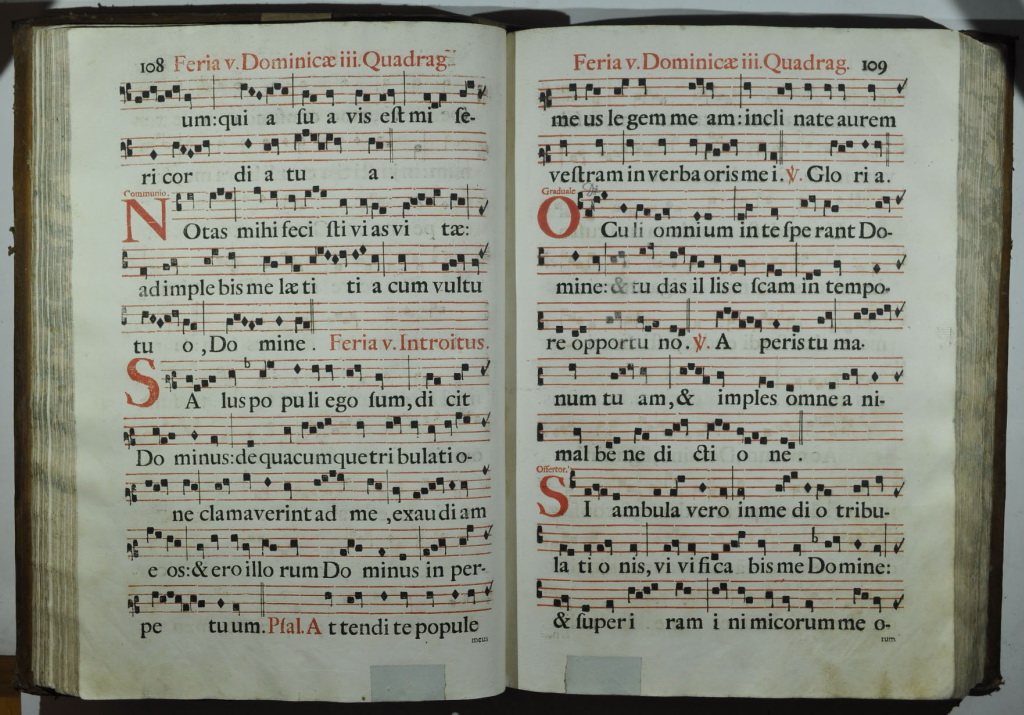 108 Feria v. Dominicæ iii. Quadrag.
um: qui a ſu a vis eſt mi ſe-
ri cor di a tu a
Communio.
NOtas mihi feci ſti vi as vi tæ:
ad imple bis me læ ti ti a cum vultu
tu o, Do mine. Feria v. Introitus.
SA lus po pu li ego ſum, di cit
Do minus: de quacumque tri bulati o-
ne clamaverint ad me, exau di am
e os: & ero illo rum Do minus in per-
pe tu um. Pſal. A t tendi te popule
meus
Feria v. Dominicæ iii. Quadrag. 109
me us le gem me am: incli nate aurem
veſtram in verba oris me i. ℣. Glo ri a.
Graduale
OCu li omni um in te ſpe rant Do-
mine: & tu das il lis e ſcam in tempo-
re opportu no. ℣. A peris tu ma-
num tu am, & imples omne a ni-
mal be ne di cti o ne.
Offertor.
SI ambula vero in me di o tribu-
la ti o nis, vi vi fica bis me Domine:
& ſuper i ram i ni micorum me o-
rum